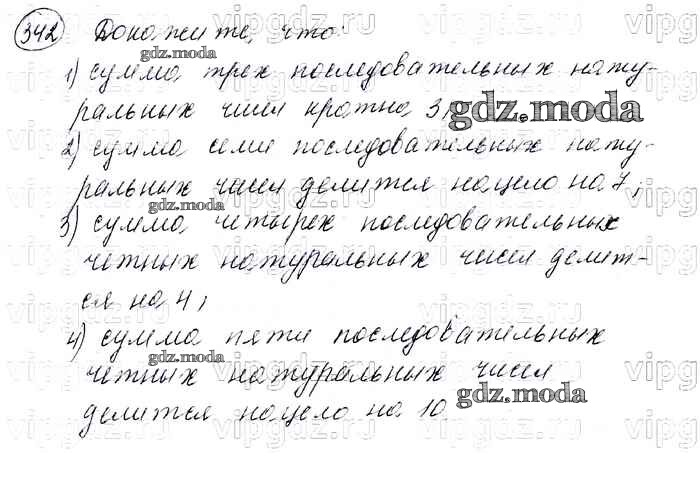 342 Докажите, что:
1) сумма трех последовательных нату-
ральных чисел кратна 3;
2) сумма семи последовательных нату-
ральных чисел делится нацело на 7;
3) сумма четырех последовательных
четных натуральных чисел делит-
ся на 4;
4) сумма пяти последовательных
четных натуральных чисел
делится нацело на 10
gdz.moda
gdz.moda
gdz.moda
gdz.moda
gdz.moda
vipgdz.ru